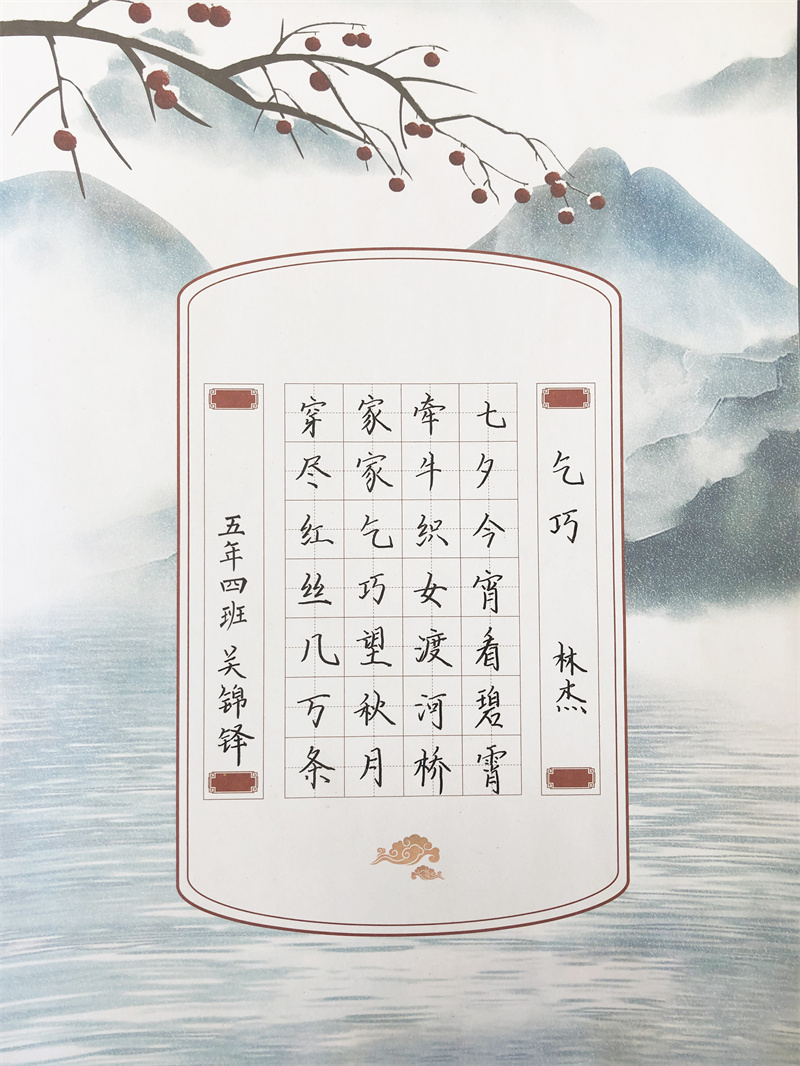 乞巧 林杰
七夕今宵看碧霄
牵牛织女渡河桥
家家乞巧望秋月
穿尽红丝几万条
五年四班 吴锦铎